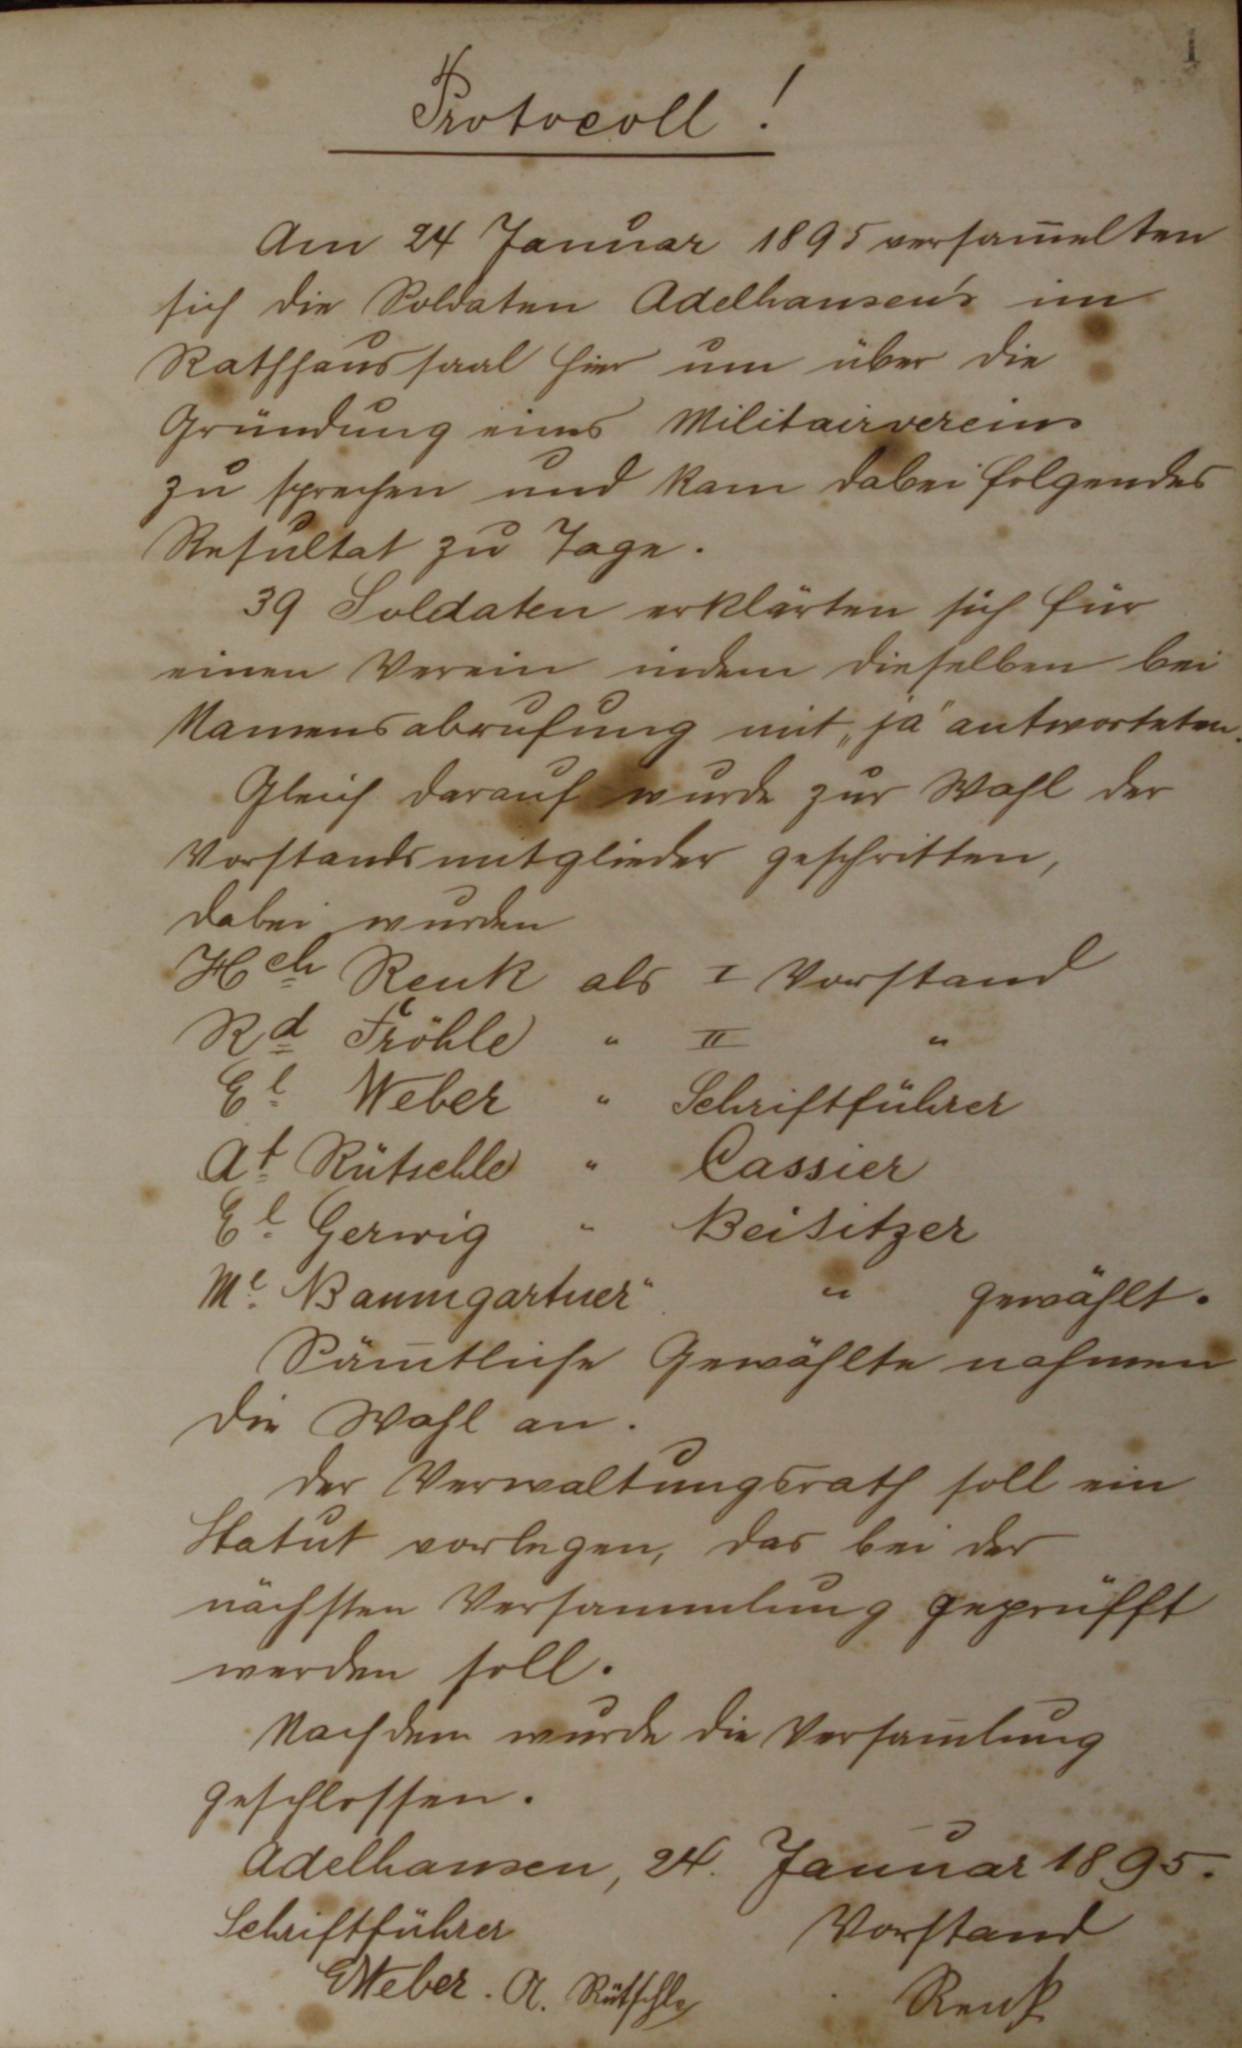 1
Protocoll!
Am 24 Januar 1895 versam̅elten
sich die Soldaten Adelhausen's im
Rathhaussaal hier um über die
Gründung eines Militairvereins
zu sprechen und kam dabei folgendes
Resultat zu Tage.
39 Soldaten erklärten sich für
einen Verein indem dieselben bei
Namensabrufung mit „ja" antworteten.
Gleich darauf wurde zur Wahl der
Vorstandsmitglieder geschritten,
dabei wurden
Hch Renk als I Vorstand
Rd Fröhle " II "
El Weber " Schriftführer
At Rütschle " Cassier
El Gerwig " Beisitzer
Ml Baumgartner " " gewählt.
Säm̅tliche Gewählte nahmen
die Wahl an.
Der Verwaltungsrath soll ein
Statut vorlegen, das bei der
nächsten Versammlung geprüfft
werden soll.
Nachdem wurde die Versam̅lung
geschlossen.
Adelhausen, 24. Januar 1895.
Schriftführer Vorstand
EWeber. A. Rütschle Renk